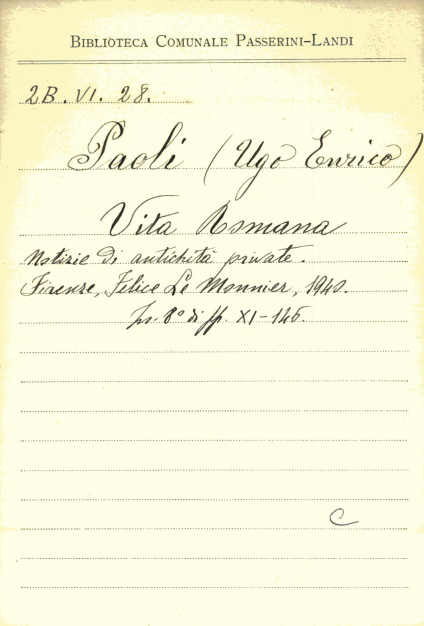 BIBLIOTECA COMUNALE PASSERINI-LANDI
2B. VI. 28.
Paoli (Ugo Enrico)
Vita Romana
Notizie di antichità private.
Firenze, Felice Le Monnier, 1940.
in 8° di pp. XI-146.
C